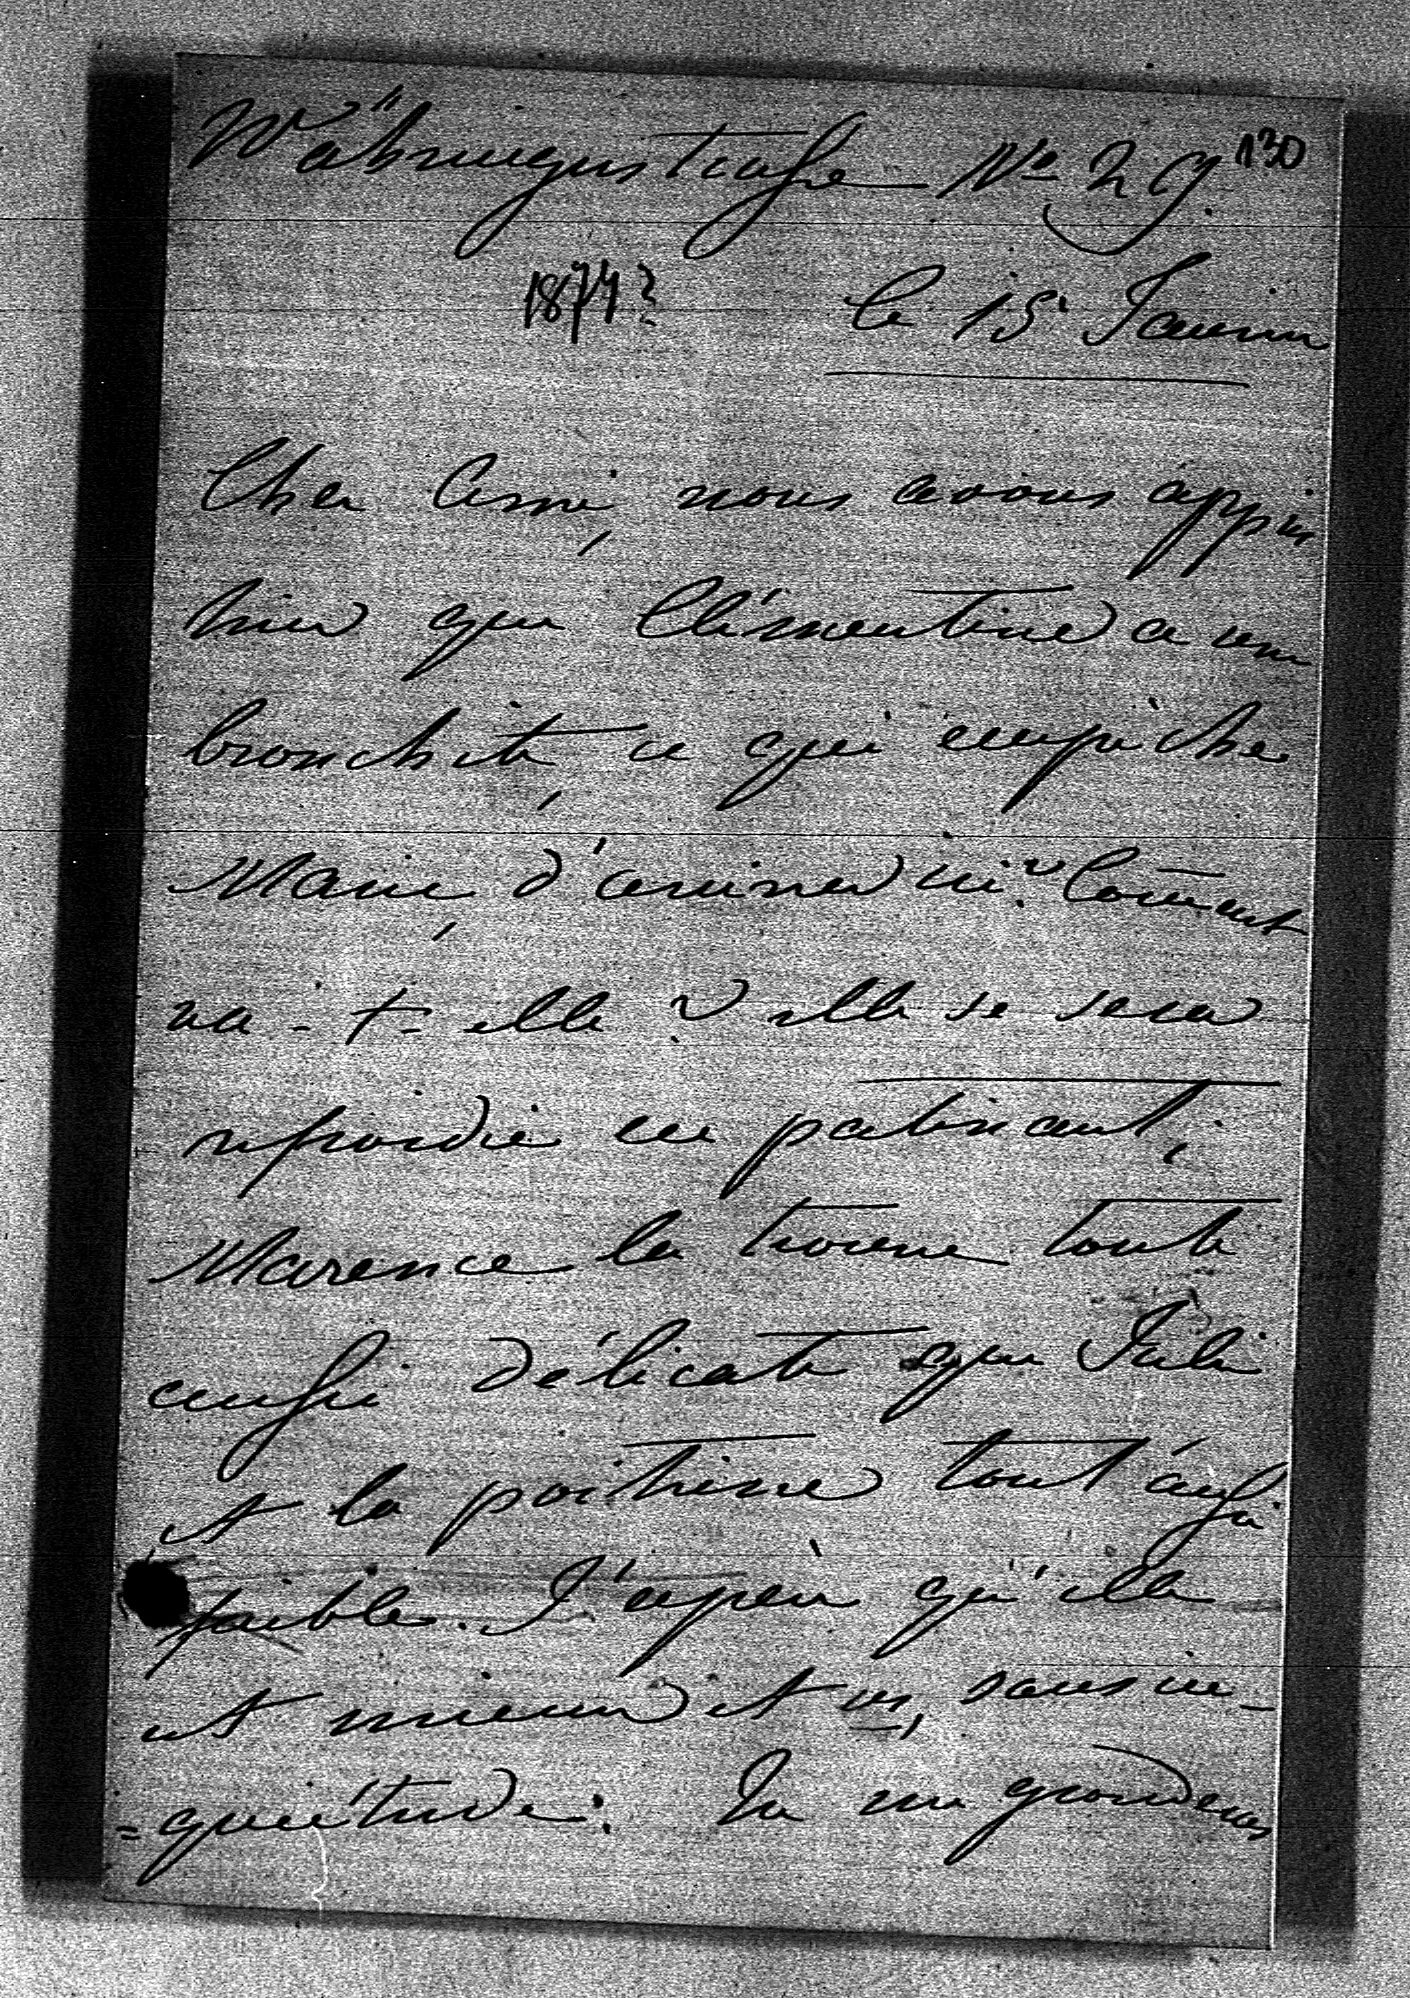 Währingerstrasse No 29. 130
1874? le 15 Janvier
Cher Ami, nous avons appris
hier que Clémentine a une
bronchite, ce qui empêche
Marie, d'arriver ici. Coment
va-t-elle? elle se sera
refroidie en patinant;
Marence la trouve toute
aussi délicate que Julie
et la poitrine tout aussi
faible. J'espère qu'elle
est mieux et vs, sans in-
=quiétude. Tu me gronderas